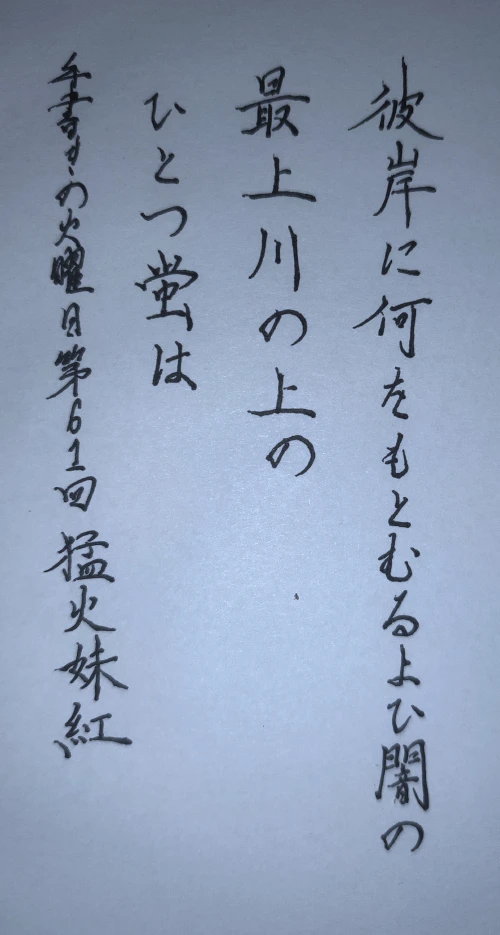 彼岸に何をもとむるよひ闇の
最上川の上の
ひとつ螢は
手書きの火曜日第61回 猛火妹紅